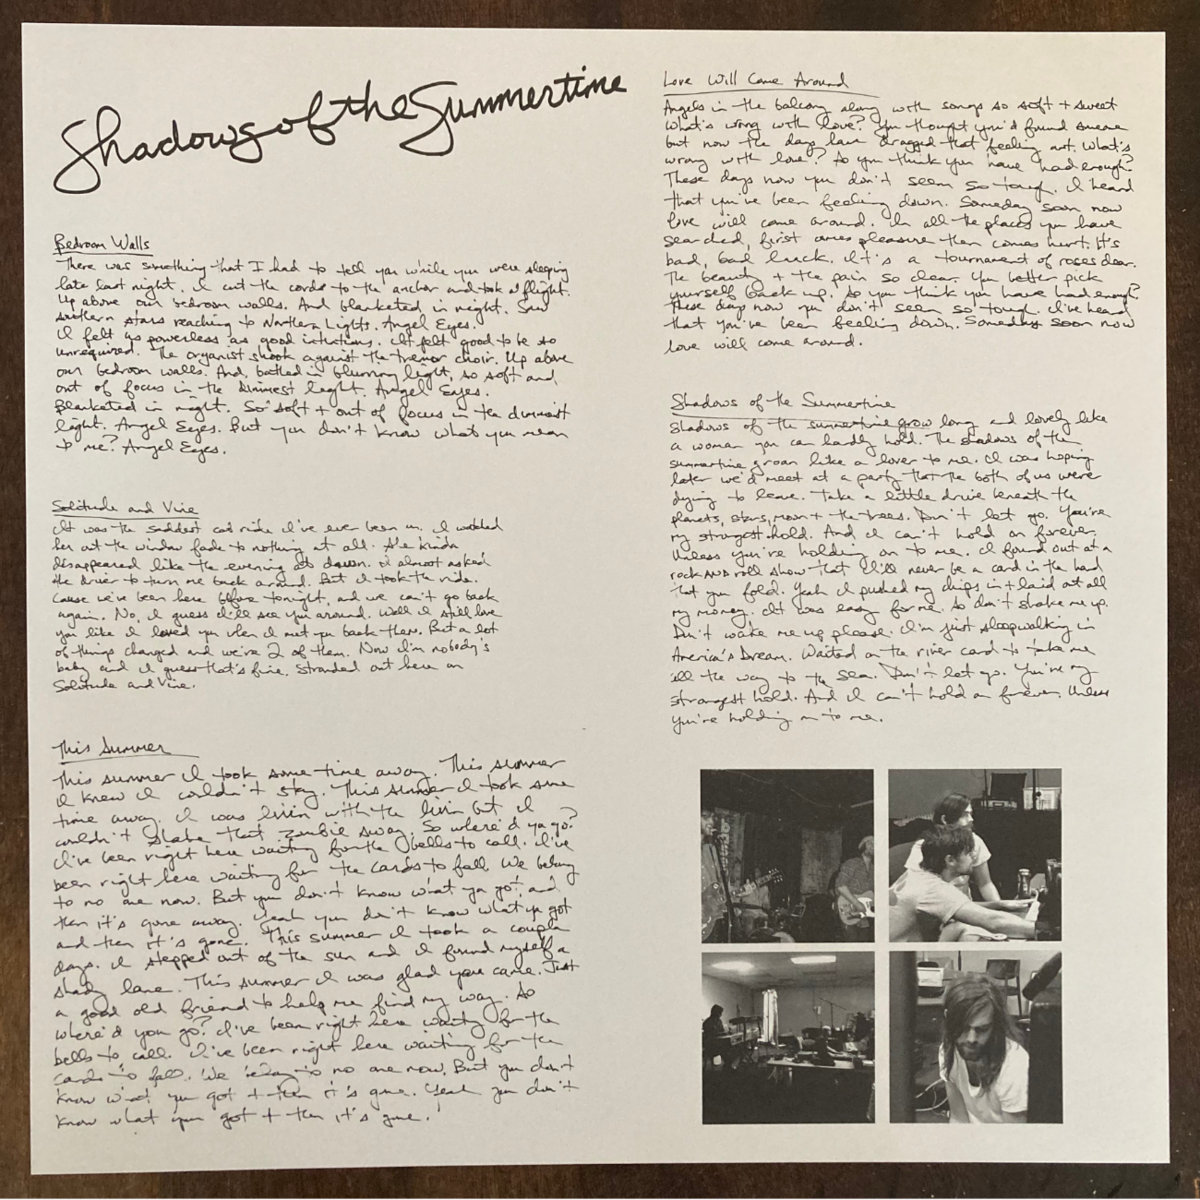 Shadows of the Summertime
Bedroom Walls
There was something that I had to tell you while you were sleeping
late last night. I cut the cords to the anchor and took flight.
Up above our bedroom walls. And blanketed in night. Saw
southern stars reaching to Northern Lights. Angel Eyes.
I felt as powerless as good intentions. It felt good to be so
unrequired. The organist shook against the tremor choir. Up above
our bedroom walls. And, bathed in blurring light, so soft and,
out of focus in the dimmest light. Angel Eyes.
Blanketed in night. So soft + out of focus in the dimmest
light. Angel Eyes. But you don't know what you mean
to me? Angel Eyes.
Solitude and Vine
It was the saddest cab ride I've ever been on. I watched
her out the window fade to nothing at all. She kinda
disappeared like the evening at dawn. I almost asked
the driver to turn me back around. But I took the ride.
Cause we've been here before tonight, and we can't go back
again. No, I guess I'll see you around. Well I still love
you like I loved you when I met you back then. But a lot
of things changed and we're 2 of them. Now I'm nobody's
baby and I guess that's fine. Stranded out here on
Solitude and Vine.
This Summer
This summer I took some time away. This summer
I knew I couldn't stay. This summer I took some
time away. I was livin with the livin but I
couldn't shake that zombie sway. So where'd ya go?
I've been right here waiting for the bells to call. I've
been right here waiting for the cards to fall. We belong
to no one now. But you don't know what ya got and
then it's gone away. Yeah you don't know what ya got
and then it's gone. This summer I took a couple
days. I stepped out of the sun and I found myself a
shady lane. This summer I was glad you came. Just
a good old friend to help me find my way. So
where'd you go? I've been right here waiting for the
bells to call. I've been right here waiting for the
cards to fall. We belong to no one now. But you don't
know what you got + then it's gone. Yeah you don't
know what you got + then it's gone.
Love Will Come Around
Angels in the balcony along with songs so soft + sweet
What's wrong with love? You thought you'd found someone
but now the days have dragged that feeling out. What's
wrong with love? So you think you have had enough?
These days now you don't seem so tough. I heard
that you've been feeling down. Someday soon now
love will come around. In all the places you have
searched, first comes pleasure then comes hurt. It's
bad, bad luck. It's a tournament of roses dear.
The beauty + the pain so clear. You better pick
yourself back up. So you think you have had enough?
These days now you don't seem so tough. I've heard
that you've been feeling down. Someday soon now
love will come around.
Shadows of the Summertime
Shadows of the summertime grow long and lovely like
a woman you can hardly hold. The shadows of the
summertime groan like a lover to me. I was hoping
later we'd meet at a party that the both of us were
dying to leave. Take a little drive beneath the
planets, stars, moon + the trees. Don't let go. You're
my strongest hold. And I can't hold on forever,
Unless you're holding on to me. I found out at a
rock and roll show that I'll never be a card in the hand
that you fold. Yeah I pushed my chips in + laid out all
my money. It was easy for me. So don't shake me up.
Don't wake me up please. I'm just sleepwalking in
America's Dream. Waited on the river card to take me
all the way to the sea. Don't let go. You're my
strongest hold. And I can't hold on forever, Unless
you're holding on to me.